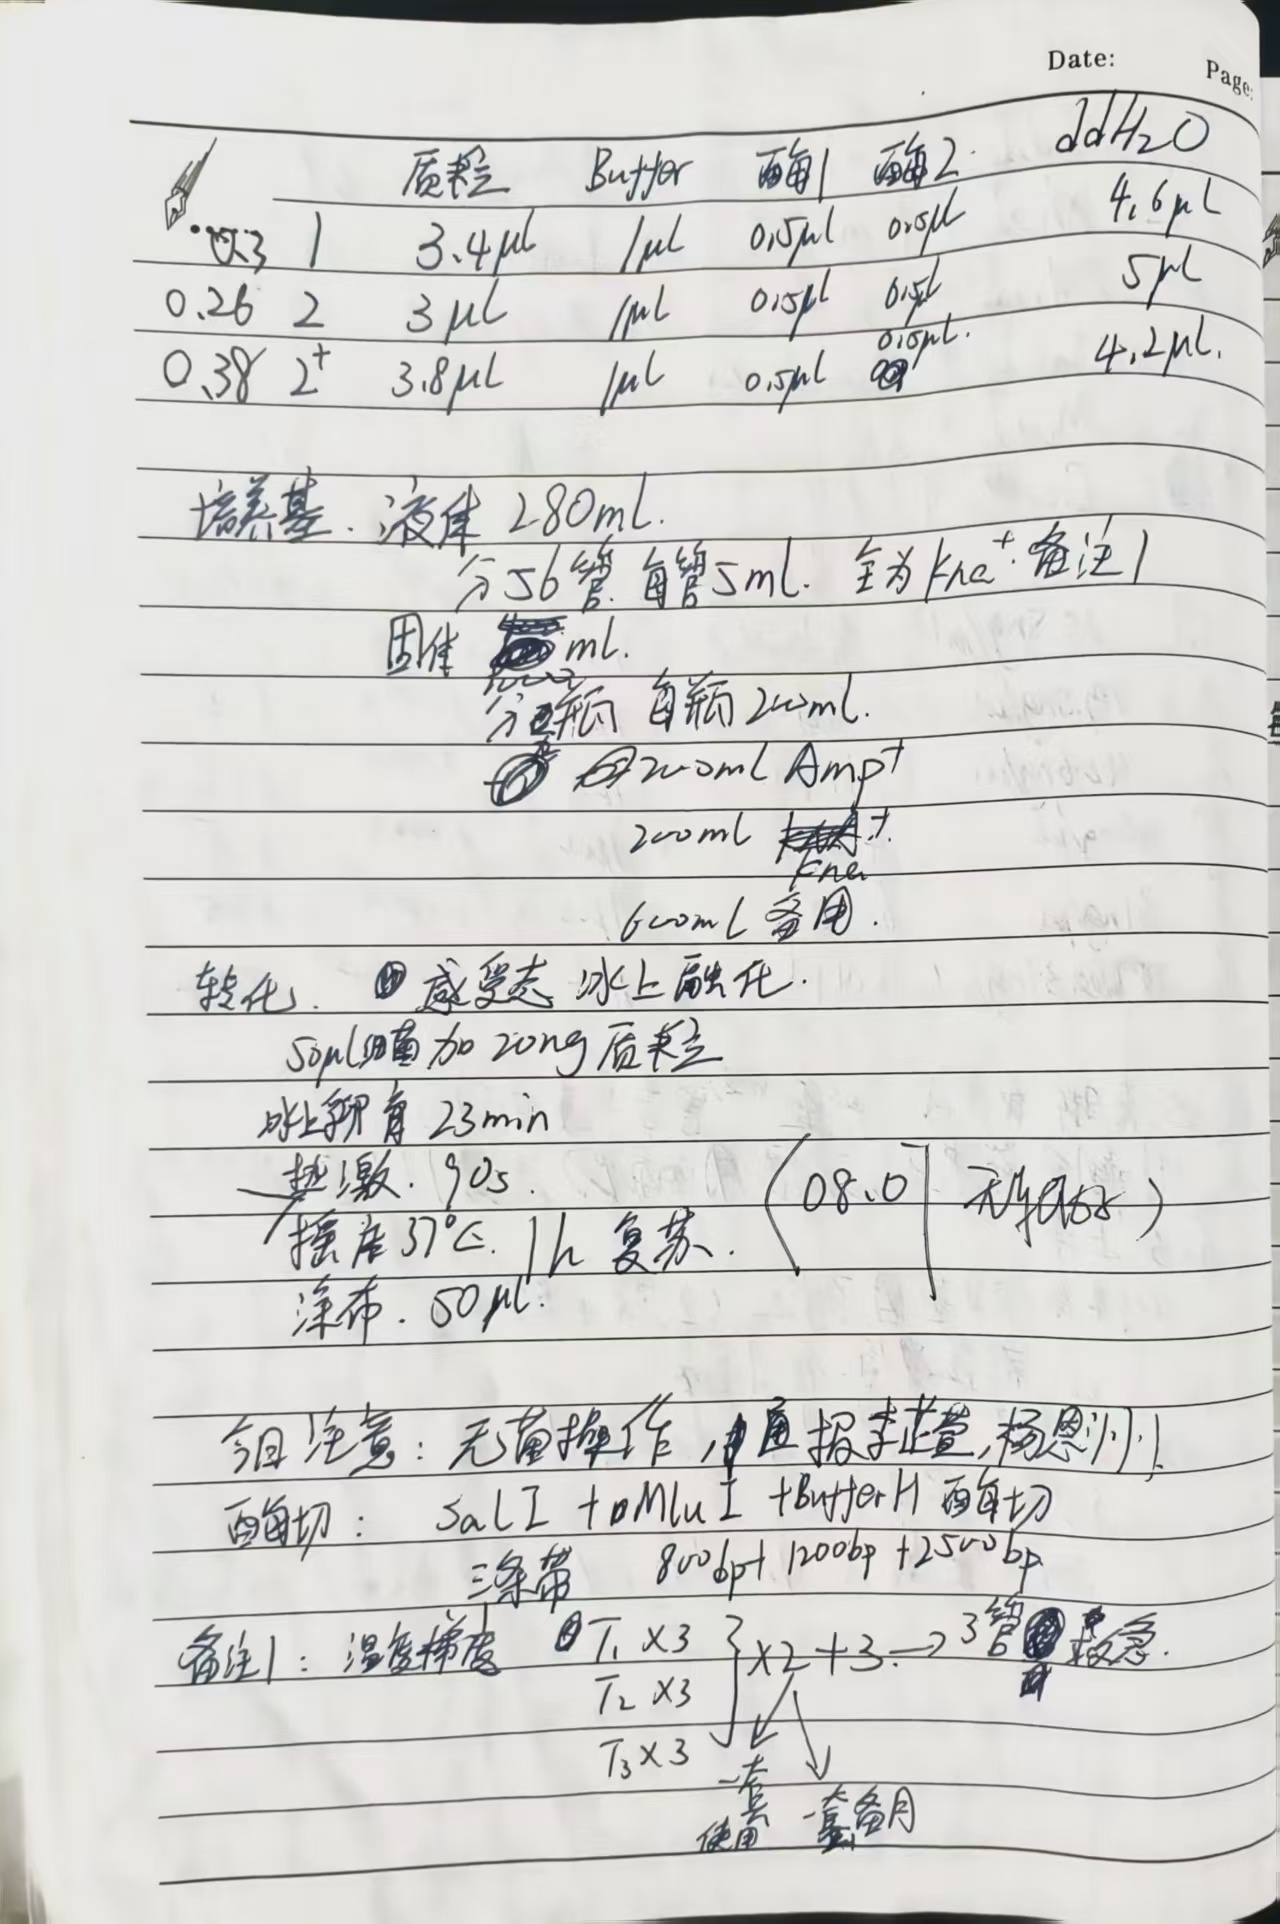 Date:
Page:
质粒 Buffer 酶1 酶2. ddH₂O
0.3 1 3.4μL 1μL 0.5μL 0.5μL 4.6μL
0.26 2 3μL 1μL 0.5μL 0.5μL 5μL
0.38 2⁺ 3.8μL 1μL 0.5μL 0.5μL. 4.2μL.
培养基. 液体 280ml.
分56管. 每管5ml. 全为kna⁺. 备注1
固体 ml.
分 瓶 每瓶200ml.
200ml Amp⁺
200ml kna⁺.
600ml 备用.
转化. 感受态 冰上融化.
50μL细菌加20ng质粒
冰上孵育 23min
热激. 90s.
摇床37℃. 1h 复苏. (08.0 无
涂布. 50μL.
今日注意: 无菌操作,
酶切: SalI + MluI + BufferH 酶切
三条带 800bp+ 1200bp +2500bp
备注1: 温度梯度 T₁ ×3 }×2+3→3管 救急.
T₂ ×3
T₃ ×3
一套使用 一套备用